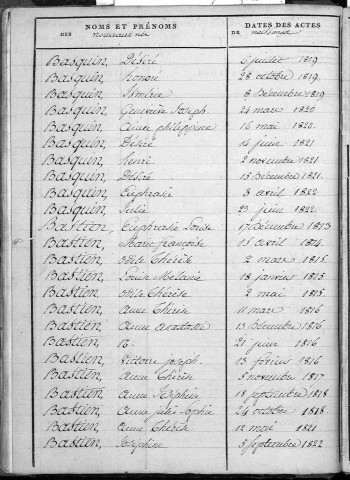 NOMS ET PRÉNOMS DATES DES ACTES
DES nouveaux nés DE naissance
Basquin, Désiré 6 juillet 1819
Basquin, honoré 28 octobre 1819.
Basquin, 8 décembre 1819
Basquin, Geneviève Joseph 24 mars 1820
Basquin, Aimée philippine 16 mai 1820.
Basquin, Désiré 14 juin 1821
Basquin, henri 2 novembre 1821
Basquin, Désiré 15 décembre 1821.
Basquin, Euphrasie 8 avril 1822
Basquin, Julie 29 juin 1822.
Bastien, Euphrasie Louise 17 décembre 1813
Bastien, Marie françoise 15 avril 1814.
Bastien, Thérèse 2 mars 1815.
Bastien, Louise Mélanie 18 janvier 1815
Bastien, Thérèse 2 mai 1815.
Bastien, anne Thérèse 11 mars 1816
Bastien, anne 13 décembre 1816
Bastien, N. 21 juin 1816
Bastien, Victoire Joseph. 13 février 1816
Bastien, anne Thérèse 5 novembre 1817
Bastien, anne Joséphine 18 septembre 1818
Bastien, anne julie sophie 24 octobre 1818.
Bastien, anne Thérèse 12 mai 1821
Bastien, Joséphine 5 septembre 1822